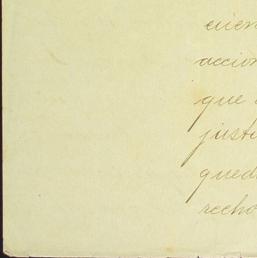 cuen
accion
que
justi
qued
recho